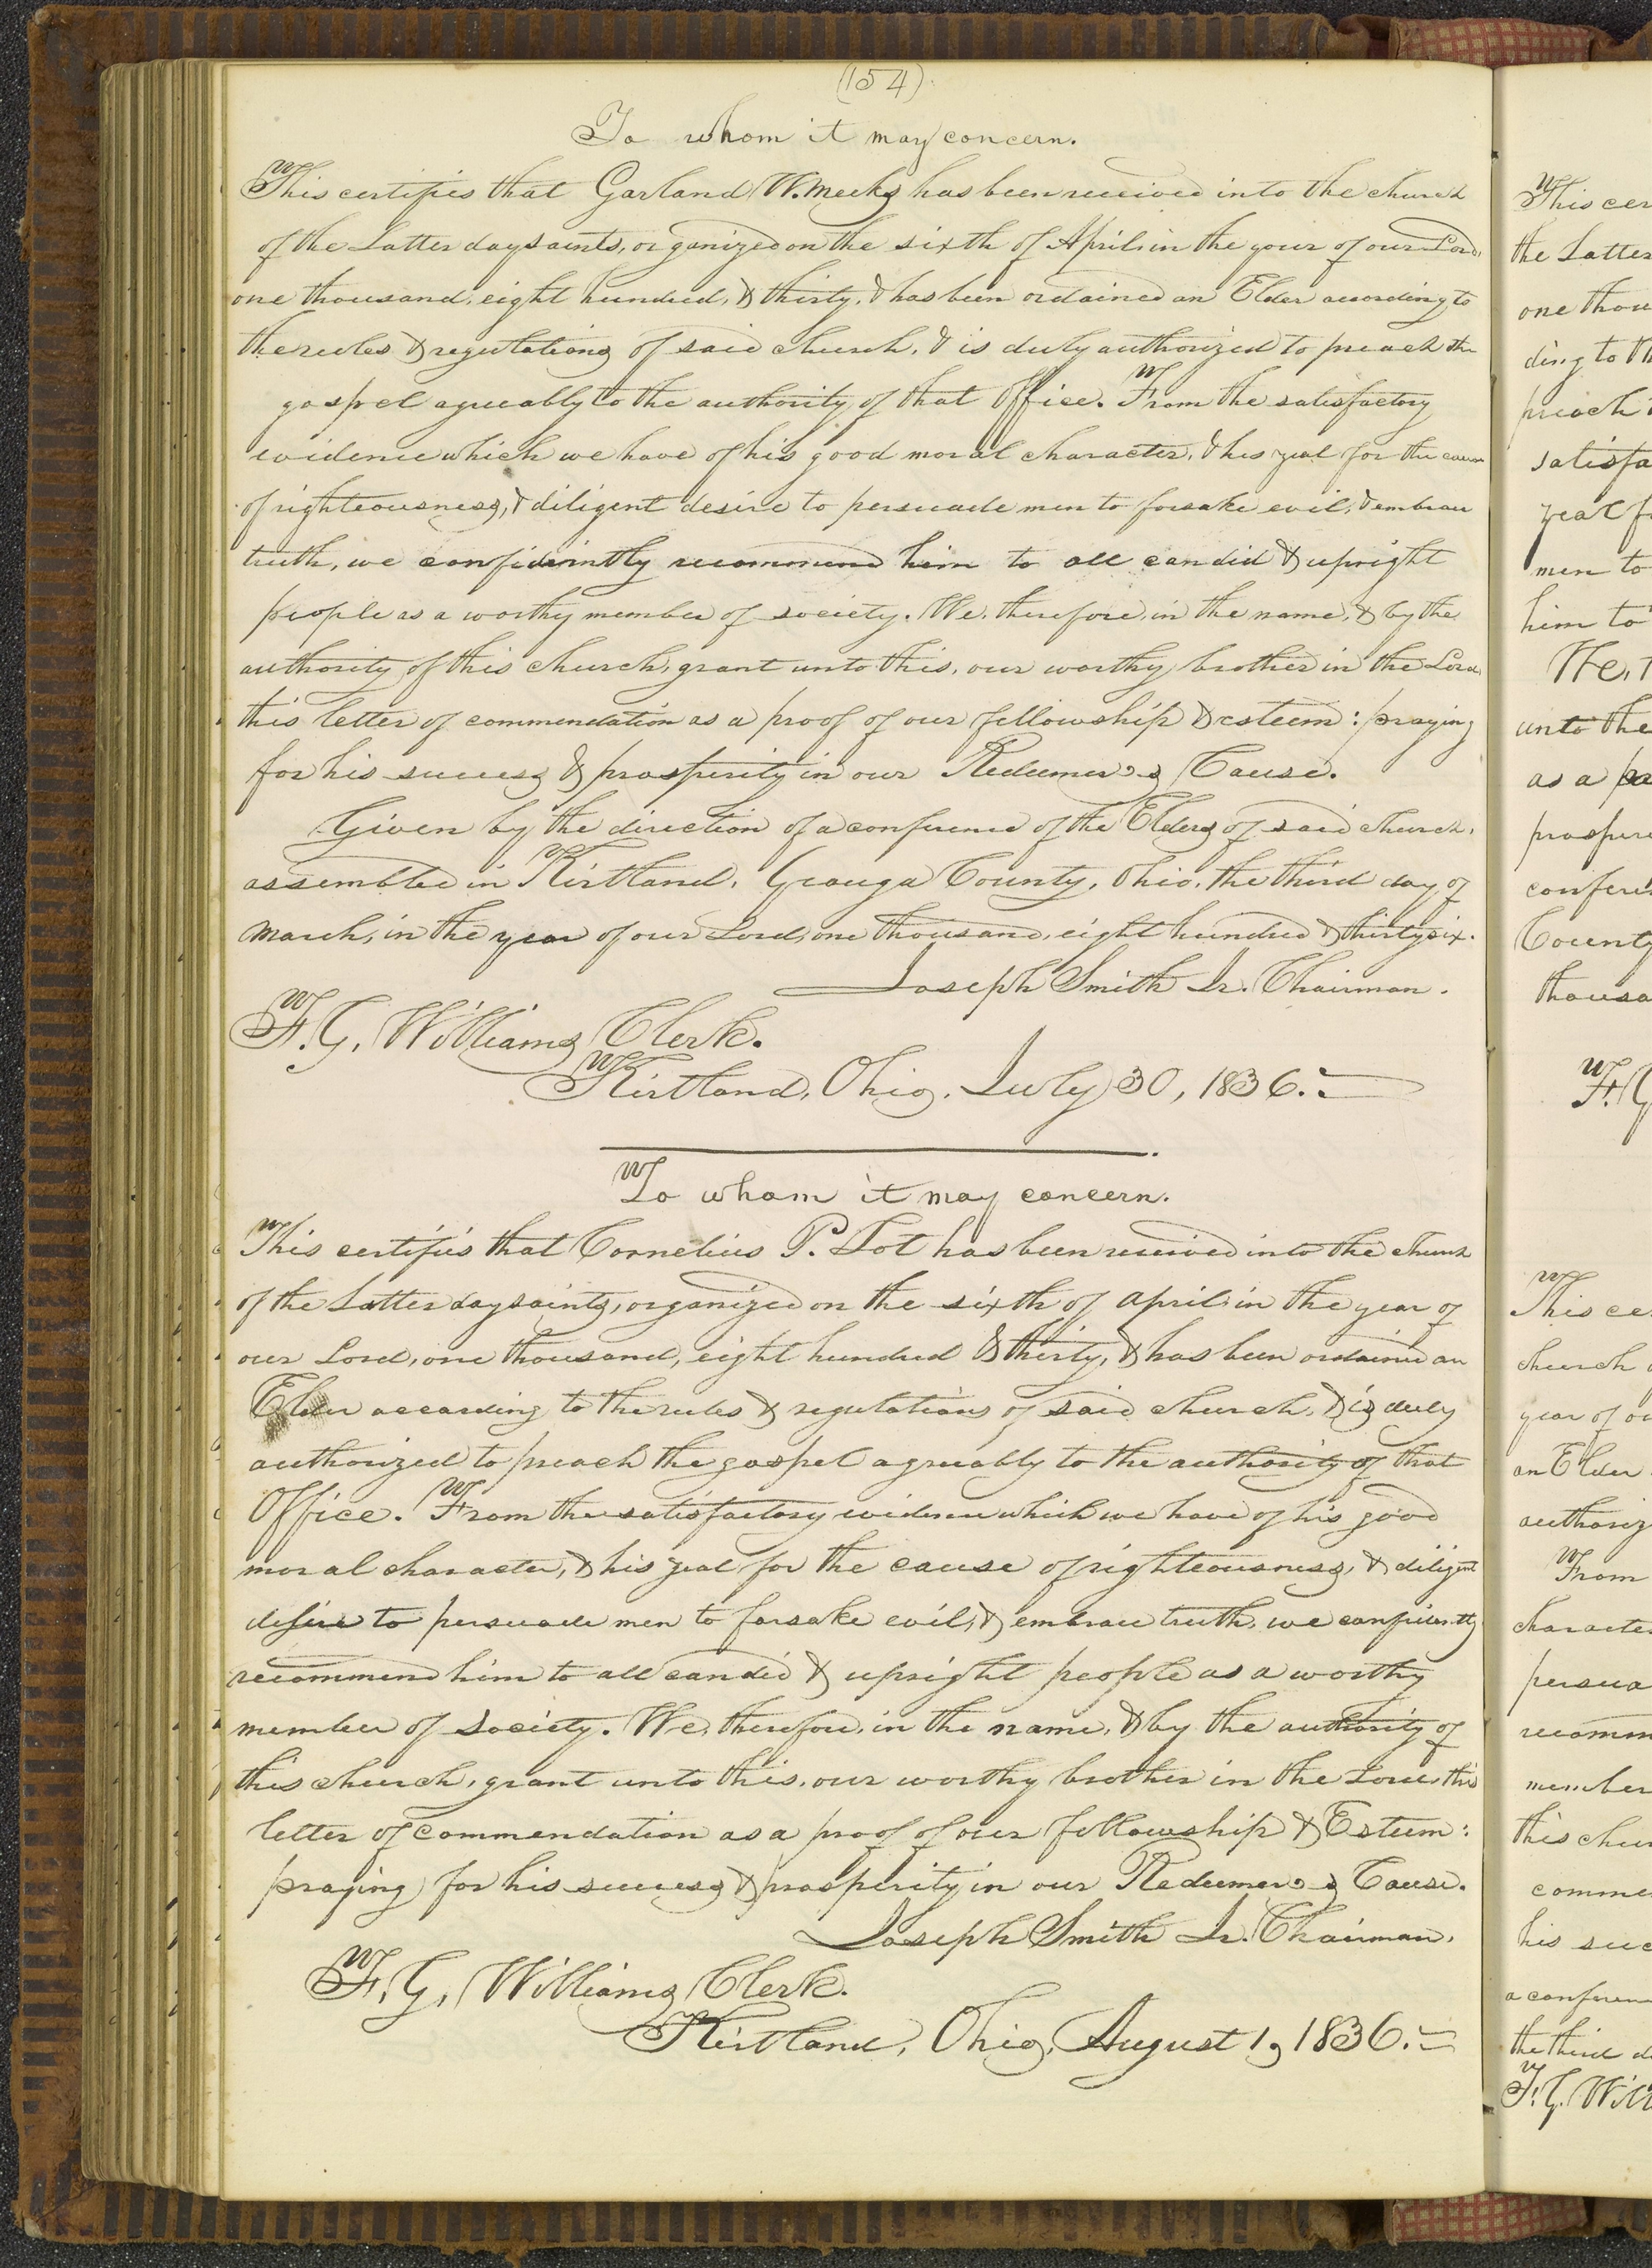 (154)
To whom it may concern.
This certifies that Garland W. Meeks has been received into the church
of the Latter day saints, organized on the sixth of April, in the year of our Lord,
one thousand, eight hundred, & thirty, & has been ordained an Elder according to
the rules & regulations of said church, & is duly authorized to preach the
gospel agreeably to the authority of that Office. From the satisfactory
evidence which we have of his good moral character, & his zeal for the cause
of righteousness, & diligent desire to persuade men to forsake evil, & embrace
truth, we confidently recommend him to all candid & upright
people as a worthy member of society. We, therefore, in the name, & by the
authority of this church, grant unto this, our worthy brother in the Lord,
this letter of commendation as a proof of our fellowship & esteem: praying
for his success & prosperity in our Redeemer's Cause.
Given by the direction of a conference of the Elders of said church,
assembled in Kirtland, Geauga County, Ohio, the third day of
March, in the year of our Lord, one thousand, eight hundred & thirty six.
Joseph Smith Jr. Chairman.
F. G. Williams Clerk.
Kirtland, Ohio, July 30, 1836.
To whom it may concern.
This certifies that Cornelius P. Lot has been received into the church
of the Latter day saints, organized on the sixth of April in the year of
our Lord, one thousand, eight hundred & thirty, & has been ordained an
Elder according to the rules & regulations of said church, & is duly
authorized to preach the gospel agreeably to the authority of that
Office. From the satisfactory evidence which we have of his good
moral character, & his zeal for the cause of righteousness, & diligent
desire to persuade men to forsake evil, & embrace truth, we confidently
recommend him to all candid & upright people as a worthy
member of society. We, therefore, in the name, & by the authority of
this church, grant unto this, our worthy brother in the Lord, this
letter of commendation as a proof of our fellowship & Esteem:
praying for his success & prosperity in our Redeemer's Cause.
Joseph Smith Jr. Chairman.
F. G. Williams Clerk.
Kirtland, Ohio, August 1, 1836.
This cer
the Latter
one thou
ding to th
preach
satisfa
zeal f
men to
him to
We, t
unto the
as a
prospere
confere
County
thousa
F. G
This ce
church
year of ou
an Elder
authoriz
From
character
persua
recomm
member
this chur
comme
his suc
a conferen
the third d
F. G. Will